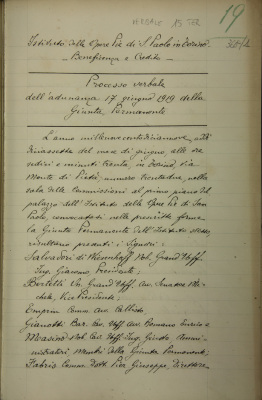 19
Istituto delle Opere Pie di S. Paolo in Torino
- Beneficenza e Credito -
Processo verbale
dell'adunanza 17 giugno 1919 della
Giunta Permanente
L'anno millenovecentodiciannove, addì
diciassette del mese di giugno, alle ore
sedici e minuti trenta, in Torino, Via
Monte di Pietà, numero trentadue, nella
sala delle Commissioni al primo piano del
palazzo dell'Istituto delle Opere Pie di San
Paolo, convocata nelle prescritte forme
la Giunta Permanente dell'Istituto stesso
risultano presenti i Signori:
Salvadori di Wiesenhoff Nob. Grand'Uff.
Ing. Giacomo, Presidente;
Bertetti Gr. Grand'Uff. Avv. Senatore Mi-
chele, Vice Presidente;
Emprin Comm. Avv. Callisto
Gianotti Bar. Cav. Uff. Avv. Romano Enrico e
Moasino Nob. Cav. Uff. Ing. Guido Ammi-
nistratori membri della Giunta Permanente;
Fabris Comm. Dott. Pier Giuseppe, Direttore